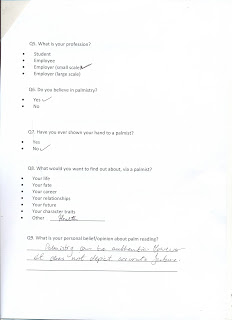 Q5. What is your profession?
• Student
• Employee
• Employer (small scale)
• Employer (large scale)
Q6. Do you believe in palmistry?
• Yes
• No
Q7. Have you ever shown your hand to a palmist?
• Yes
• No
Q8. What would you want to find out about, via a palmist?
• Your life
• Your fate
• Your career
• Your relationships
• Your future
• Your character traits
• Other Health
Q9. What is your personal belief/opinion about palm reading?
Palmistry can be authentic however
it does not depict accurate future.